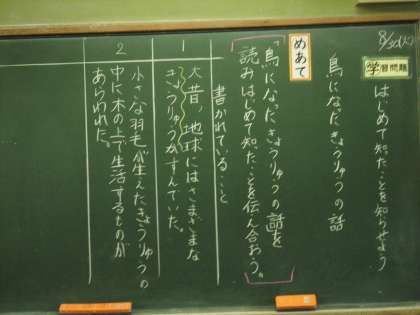 8/30(火)
学習問題
はじめて知ったことを知らせよう
鳥になったきょうりゅうの話
めあて
「鳥になったきょうりゅうの話を
読みはじめて知たことを伝え合おう。」
書かれていること
1
大昔、地球にはさまざまな
きょうりゅうがすんでいた。
2
小さな羽毛が生えたきょうりゅうの
中に木の上で生活するものが
あらわれた。